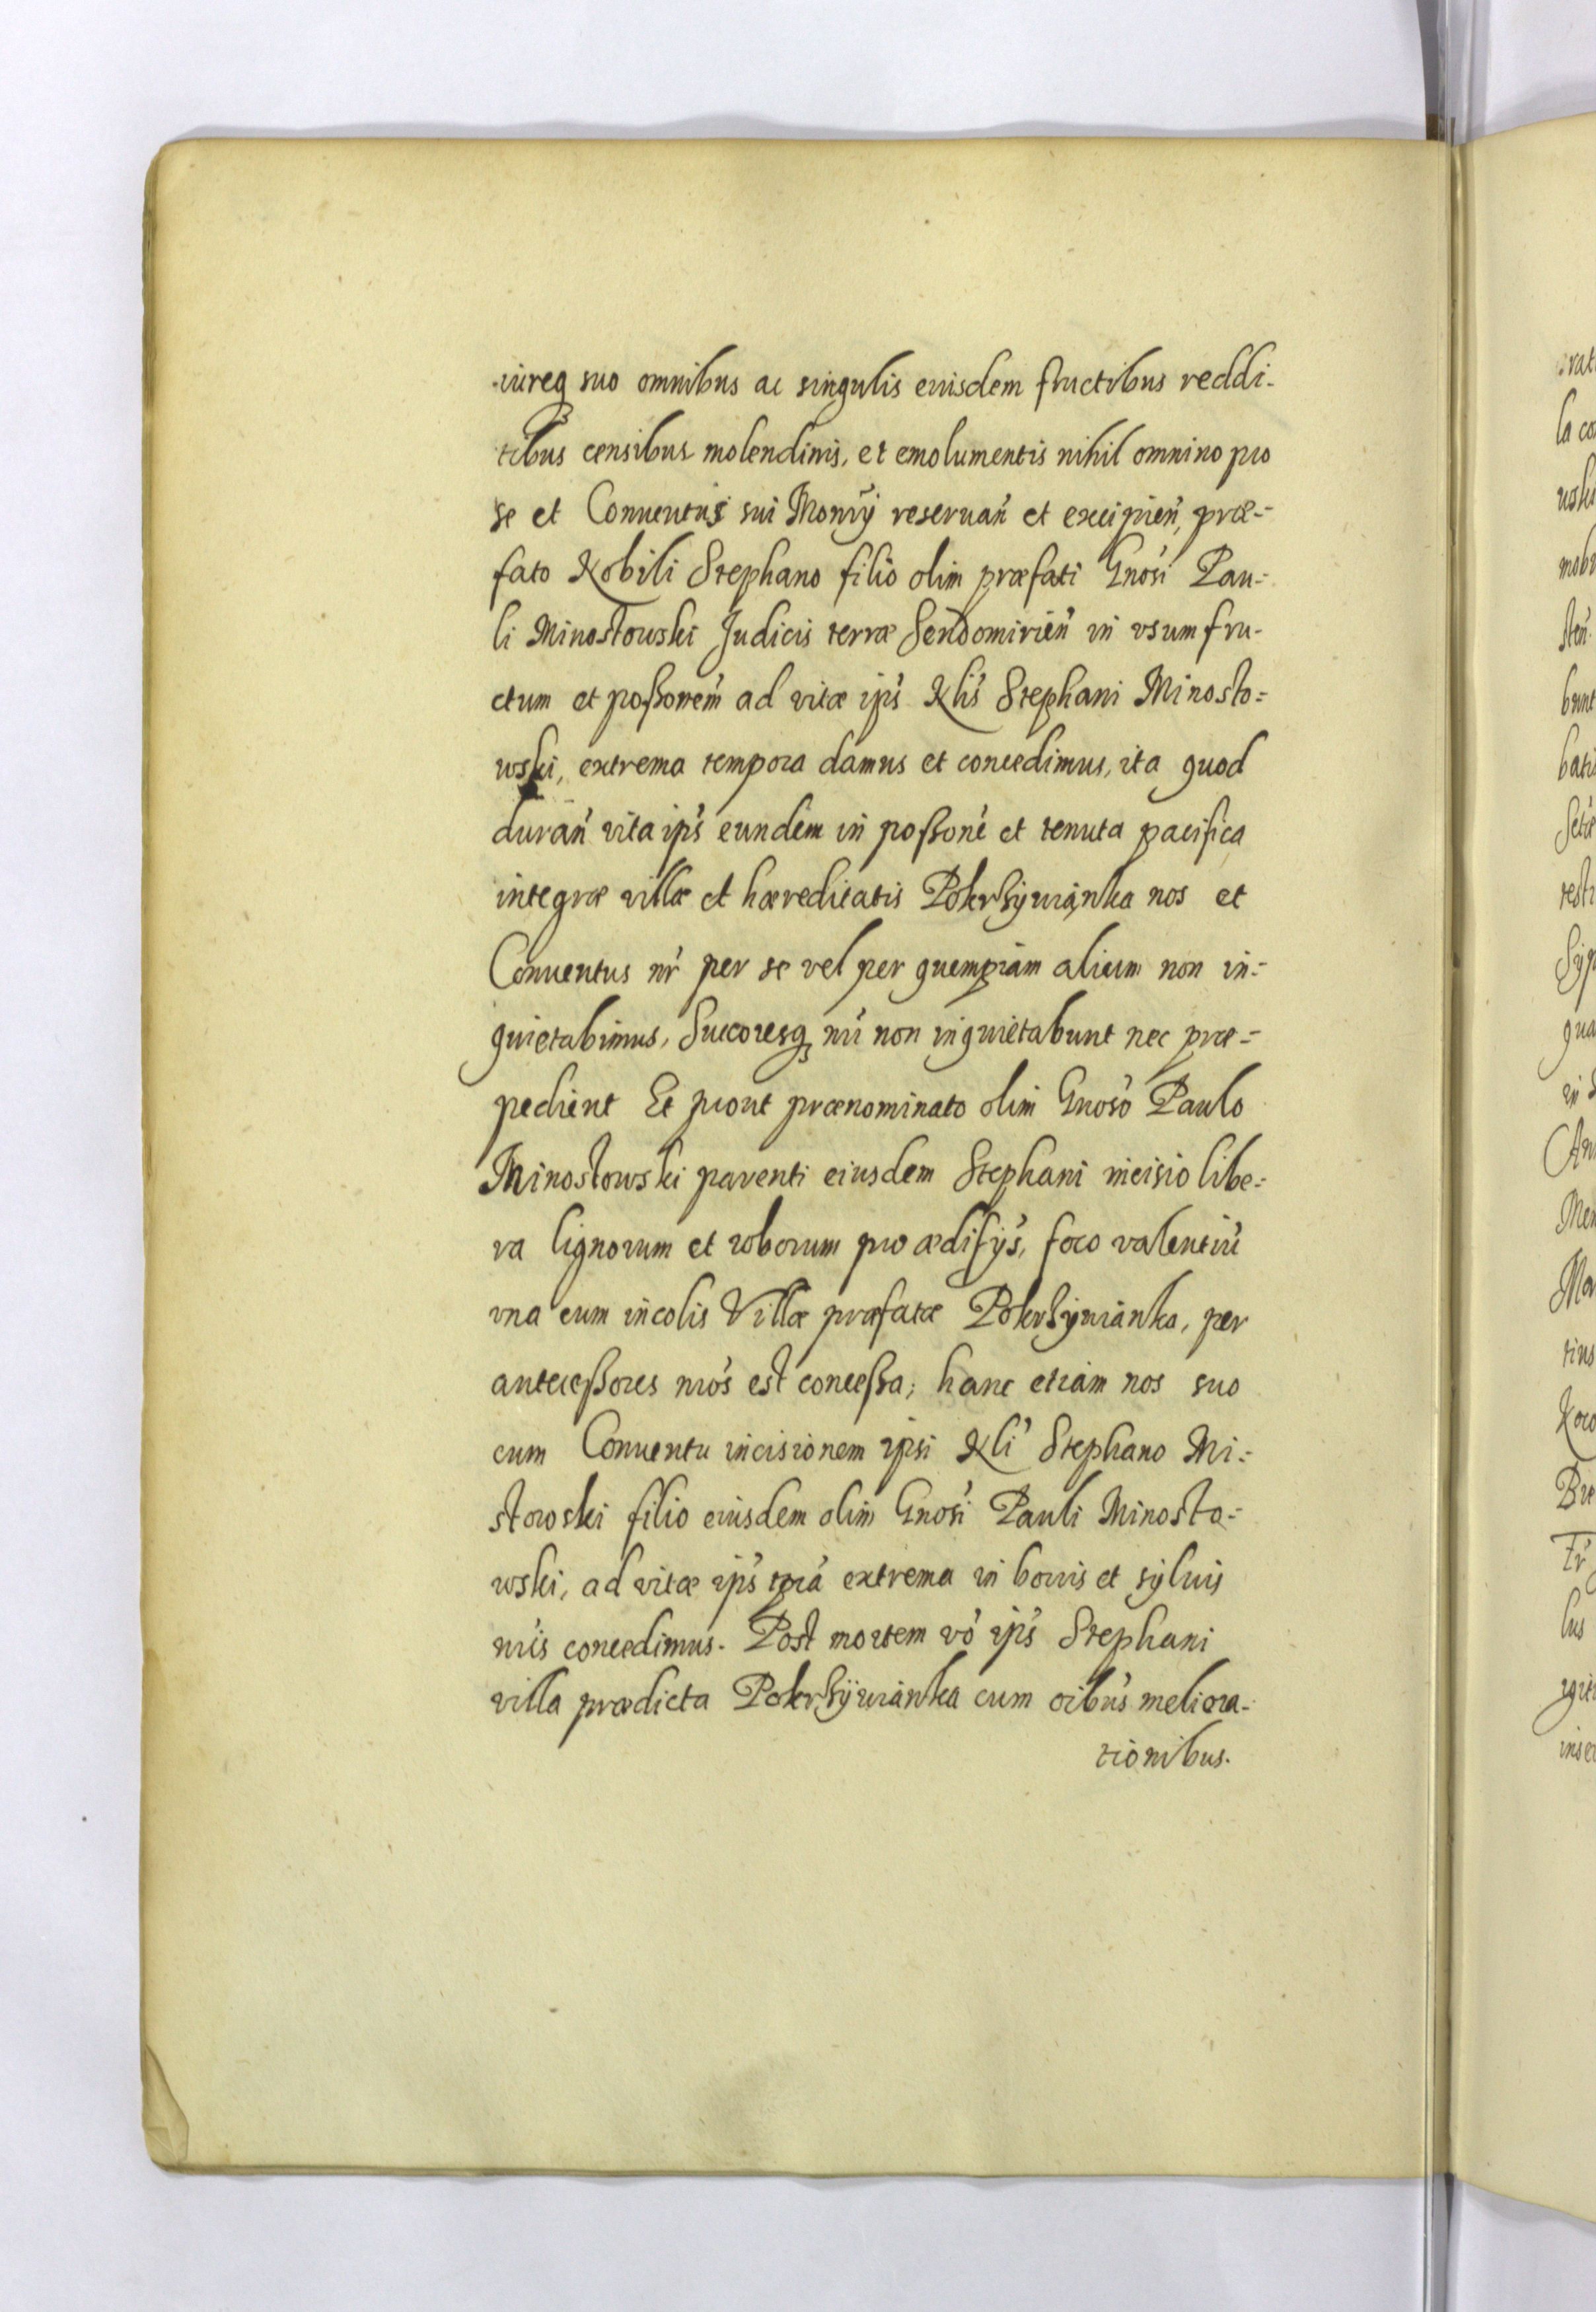 iureq suo omnibus ac singulis eiusdem fructibus reddi-
tibus censibus molendinis, et emolumentis nihil omnino pro
se et Conuentus sui Monrÿ reseruan̄ et excipien̄, præ-
fato Nobili Stephano filio olim præfati Gnosi Pau-
li Minostowski Judicis terræ Sendomirien̄ in vsumfru-
ctum et poßonem ad vitæ ips Nlis Stephani Minosto-
wski, extrema tempora damus et concedimus, ita quod
duran̄ vita ips eundem in poßone et tenuta pacifica
integræ villæ et hæreditatis Pokrßÿwianka nos et
Conuentus nr per se vel per quempiam alium non in-
quietabimus, Succoresq nri non inquietabunt nec præ-
pedient Et prout prænominato olim Gnoso Paulo
Minostowski parenti eiusdem Stephani incisio libe-
ra lignorum et roborum pro ædifÿs, foco valentiu
vna cum incolis Villæ præfatæ Pokrßÿwianka, per
anteceßores nros est conceßa; hanc etiam nos suo
cum Conuentu incisionem ipsi Nli Stephano Mi-
stowski filio eiusdem olim Gnosi Pauli Minosto-
wski, ad vitæ ips tpra extrema in borris et syluis
nris concedimus. Post mortem vo ips Stephani
villa prædicta Pokrßÿwianka cum oibus meliora-
tionibus.